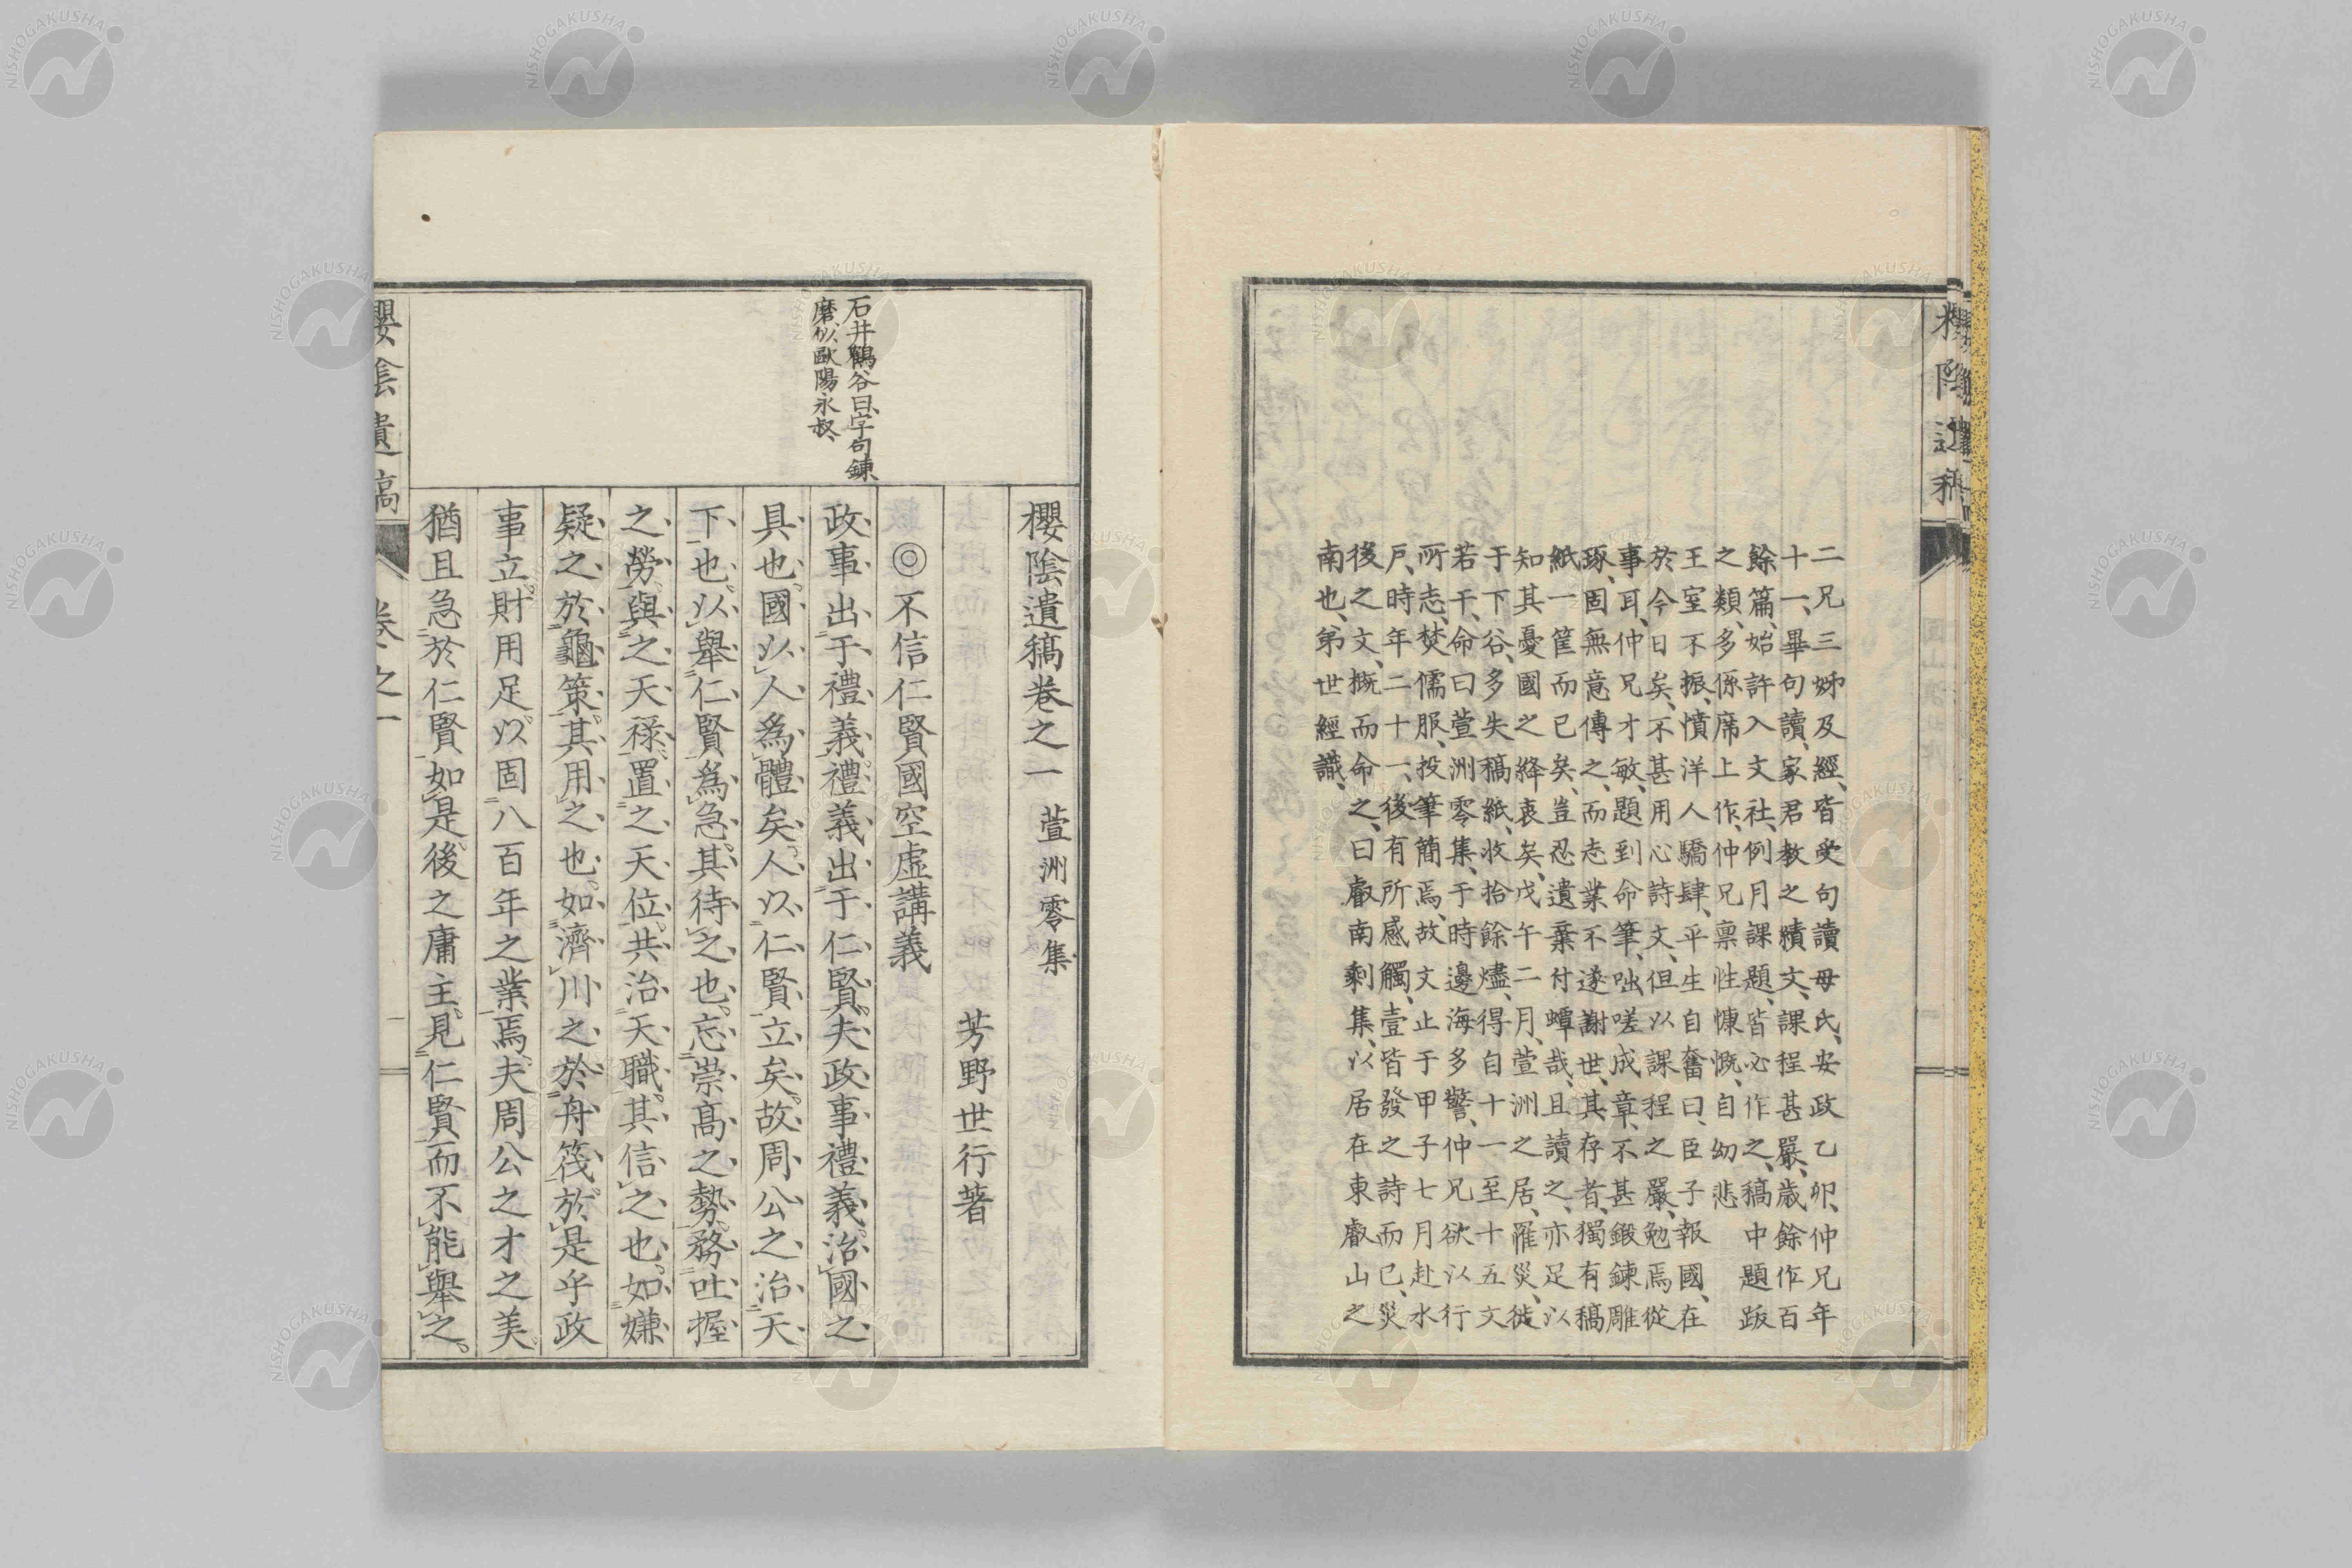 櫻陰遺稿
二兄三姊及經、皆受句讀母氏、安政乙卯、仲兄年
十一、畢句讀、家君教之績文、課程甚嚴、歲餘作百
餘篇、始許入文社、例月課題、皆必作之、稿中題跋
之類、多係席上作、仲兄禀性慷慨、自幼悲
王室不振、憤洋人驕肆、平生自奮曰、臣子報國、在
於今日矣、不甚用心詩文、但以課程之嚴、勉焉從
事耳、仲兄才敏、題到命筆、咄嗟成章、不甚鍛鍊雕
琢、固無意傳之、而志業不遂謝世、其存者、獨有稿
紙一筐而已矣、豈忍遺棄付蟫哉、且讀之、亦足以
知其憂國之絳衷矣、戊午二月、萱洲之居、罹災、徙
于下谷、多失稿紙、收拾餘燼、得自十一至十五文
若干、命曰萱洲零集、于時邊海多警、仲兄欲以行
所志、焚儒服、投筆簡焉、故文止于甲子七月赴水
戶、時年二十一、後有所感觸、壹皆發之詩而已、災
後之文、概而命之、曰叡南剩集、以居在東叡山之
南也、弟世經識、
櫻陰遺稿卷之一 萱洲零集
芳野世行著
◎不信仁賢國空虛講義
石井鶴谷曰、字句鍊
磨、似歐陽永叔、
政事出于禮義。禮義出于仁賢。夫政事禮義。治國之
具也。國以人爲體矣。人以仁賢立矣。故周公之治天
下也。以舉仁賢爲急。其待之也。忘崇高之勢。務吐握
之勞。與之天祿。置之天位。共治天職。其信之也。如嫌
疑之於龜策。其用之也。如濟川之於舟筏。於是乎政
事立。財用足。以固八百年之業焉。夫周公之才之美。
猶且急於仁賢如是。後之庸主。見仁賢而不能舉之。
櫻陰遺稿 卷之一
NISHOGAKUSHA